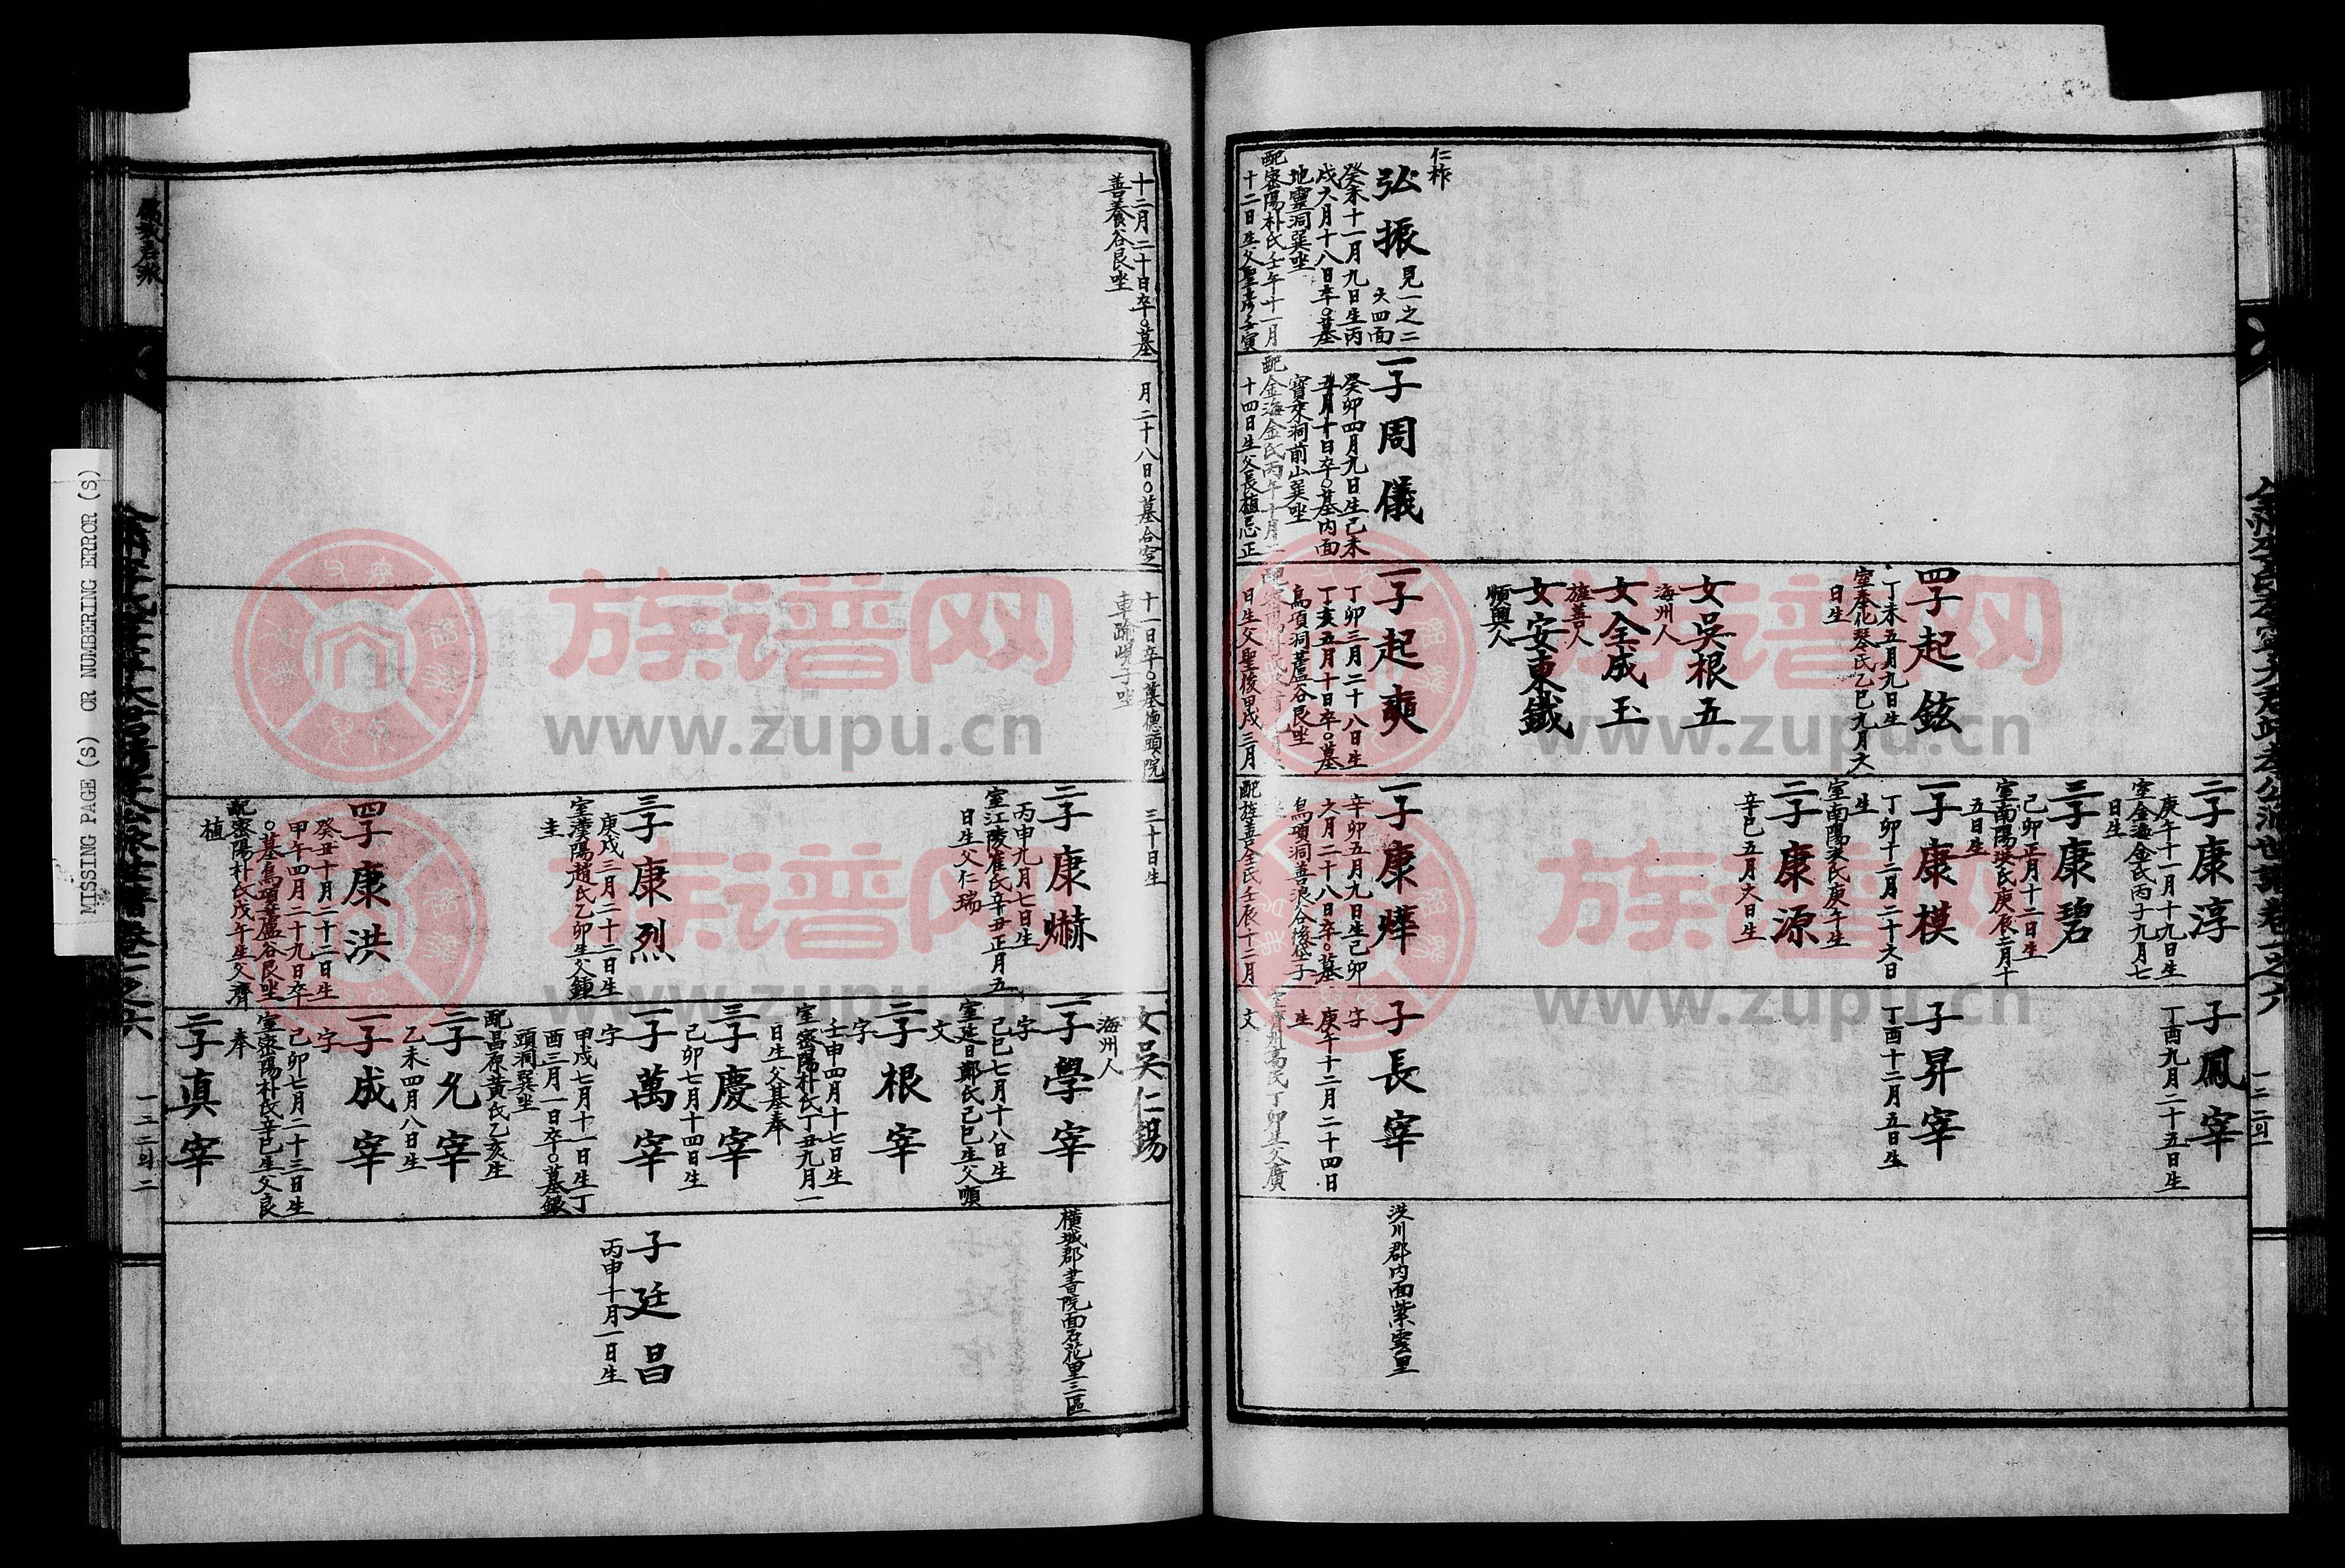 二子康淳
庚午十一月十九日生
室金海金氏丙子九月七
日生
三子康碧
己卯正月十二日生
室南陽洪氏庚辰二月十
五日生
子鳳宰
丁酉九月二十五日生
四子起鉉
丁未五月九日生
室奉化琴氏乙巳九月六
日生
一子康模
丁卯十二月二十六日
生
室南陽洪氏庚午生
二子康源
辛巳五月六日生
子昇宰
丁酉十二月五日生
女吳根五
海州人
女全成玉
旌善人
女安東鐵
順興人
仁祚
弘振
見一之二
六四面
癸未十一月九日生丙
戌六月十八日卒○墓
地靈洞巽坐
配密陽朴氏壬午十一月
十二日生父聖彦壬寅
一子周儀
癸卯四月九日生己未
五月十日卒○墓内面
寶來洞前山巽坐
配金海金氏丙午十月二
十四日生父長植忌正
一子起奭
丁卯三月二十八日生
丁亥五月十日卒○墓
烏項洞蘆谷艮坐
日生父聖俊甲戌三月
一子康燁
辛卯五月九日生己卯
六月二十八日卒○墓
配旌善全氏壬辰十二月
子長宰
字
庚午十二月二十四日
生
文
洪川郡内面紫雲里
十二月二十日卒○墓
善養谷艮坐
月二十八日○墓合窆
十一日卒○墓德頭院
車踰峴子坐
三十日生
女吳仁錫
海州人
二子康爀
丙申九月七日生
室江陵崔氏辛丑正月五
日生父仁瑞
一子學宰
字
己巳七月十八日生
室延日鄭氏己巳生父順
文
橫城郡書院面石花里三區
二子根宰
字
壬申四月十七日生
室密陽朴氏丁丑九月一
日生父基奉
三子慶宰
己卯七月十四日生
三子康烈
庚戌三月二十二日生
室漢陽趙氏乙卯生父鍾
圭
一子萬宰
字
甲戌七月十一日生丁
酉三月一日卒○墓銀
頭洞巽坐
配昌原黃氏乙亥生
子廷昌
丙申十月一日生
二子允宰
乙未四月八日生
四子康洪
癸丑十月二十二日生
甲午四月二十九日卒
○墓烏項蘆谷艮坐
配密陽朴氏戊午生父齊
植
一子成宰
字
己卯七月二十三日生
室密陽朴氏辛巳生父良
奉
二子真宰
一三二의一
一三二의二
MISSING PAGE (S) OR NUMBERING ERROR (S)
族谱网
www.zupu.cn
族谱网
www.zupu.cn
族谱网
www.zupu.cn
族谱网
www.zupu.cn